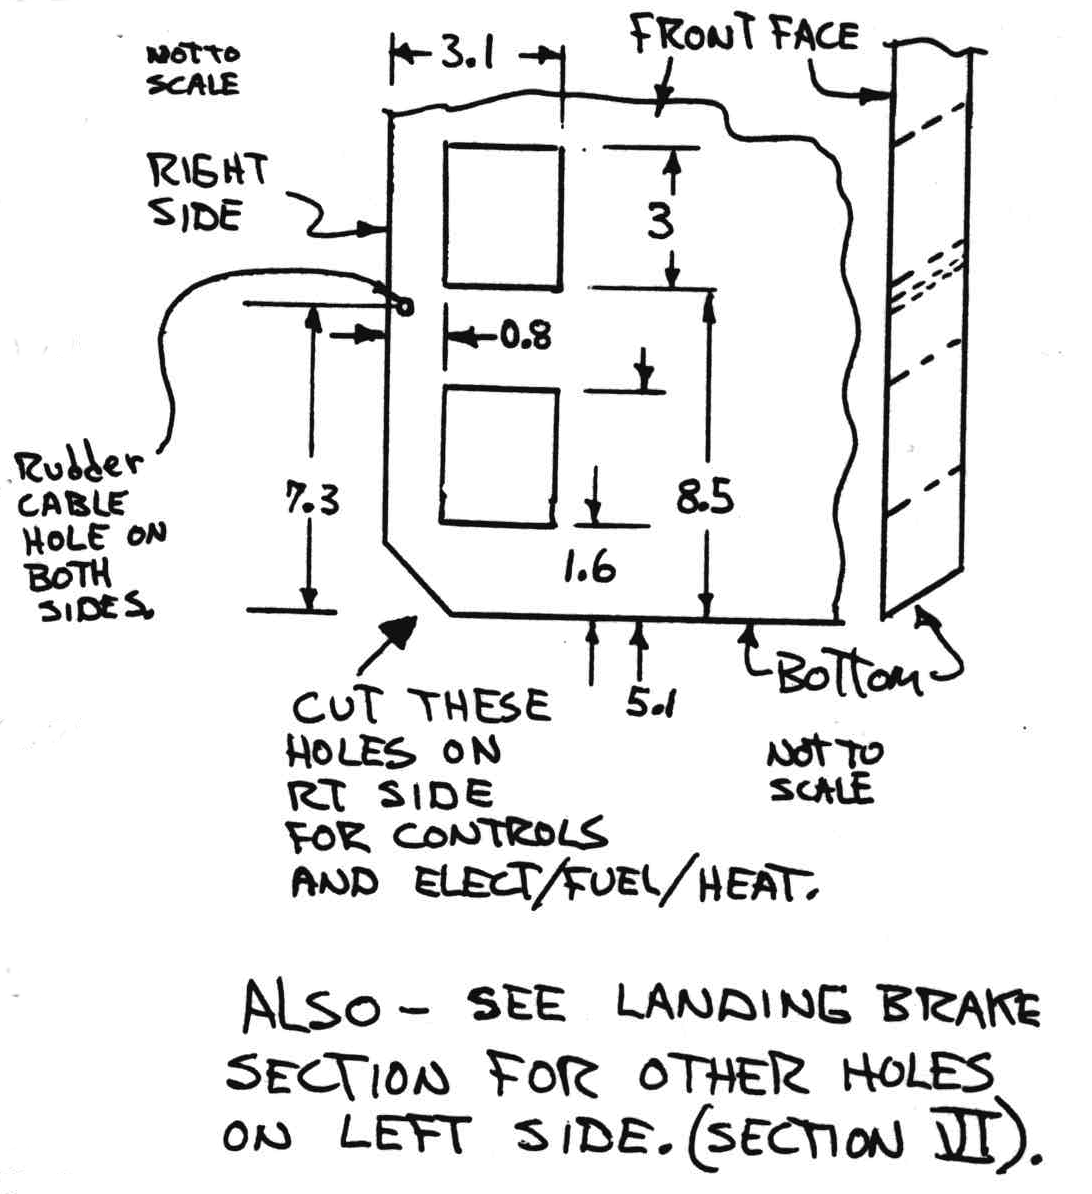 NOT TO
SCALE
3.1
FRONT FACE
RIGHT
SIDE
3
0.8
Rudder
CABLE
HOLE ON
BOTH
SIDES.
7.3
8.5
1.6
5.1
BOTTOM
CUT THESE
HOLES ON
RT SIDE
FOR CONTROLS
AND ELECT/FUEL/HEAT.
NOT TO
SCALE
ALSO - SEE LANDING BRAKE
SECTION FOR OTHER HOLES
ON LEFT SIDE. (SECTION VI).